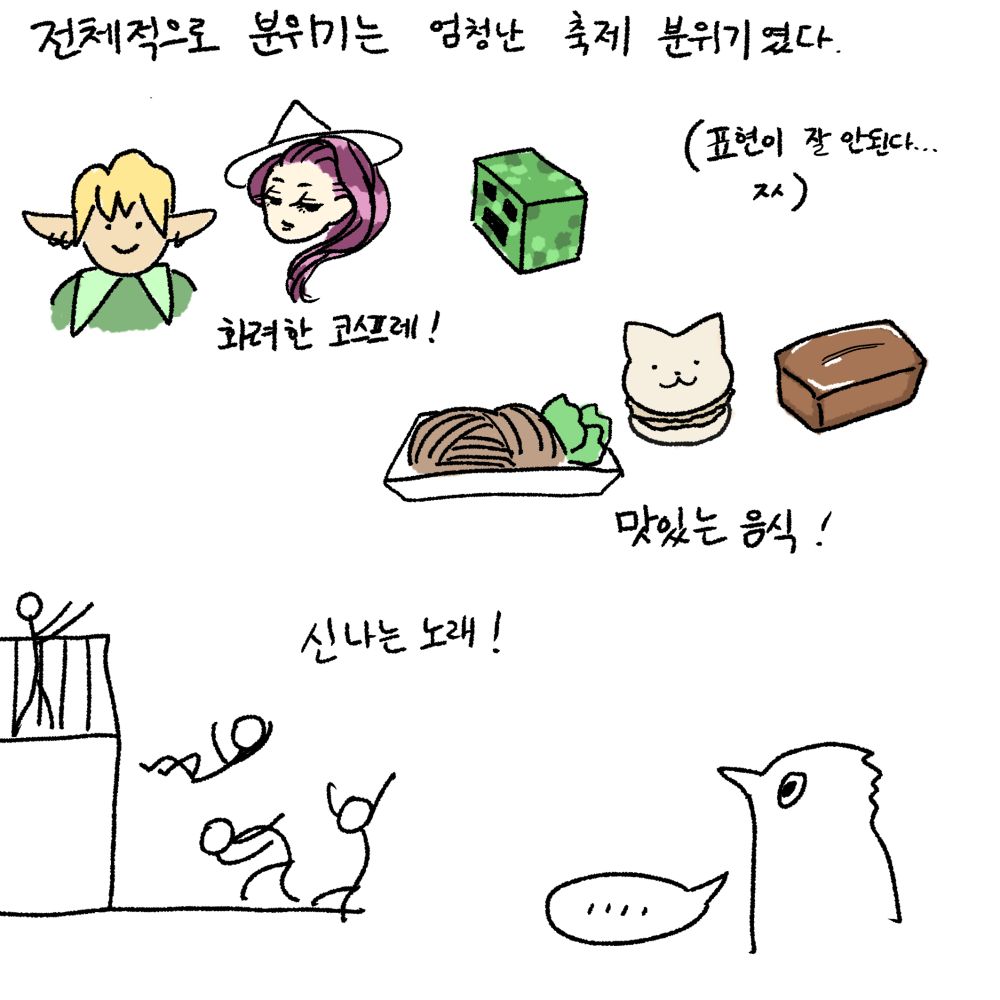 전체적으로 분위기는 엄청난 축제 분위기였다.
(표현이 잘 안된다...
ㅈㅅ)
화려한 코스프레!
맛있는 음식!
신나는 노래!
....